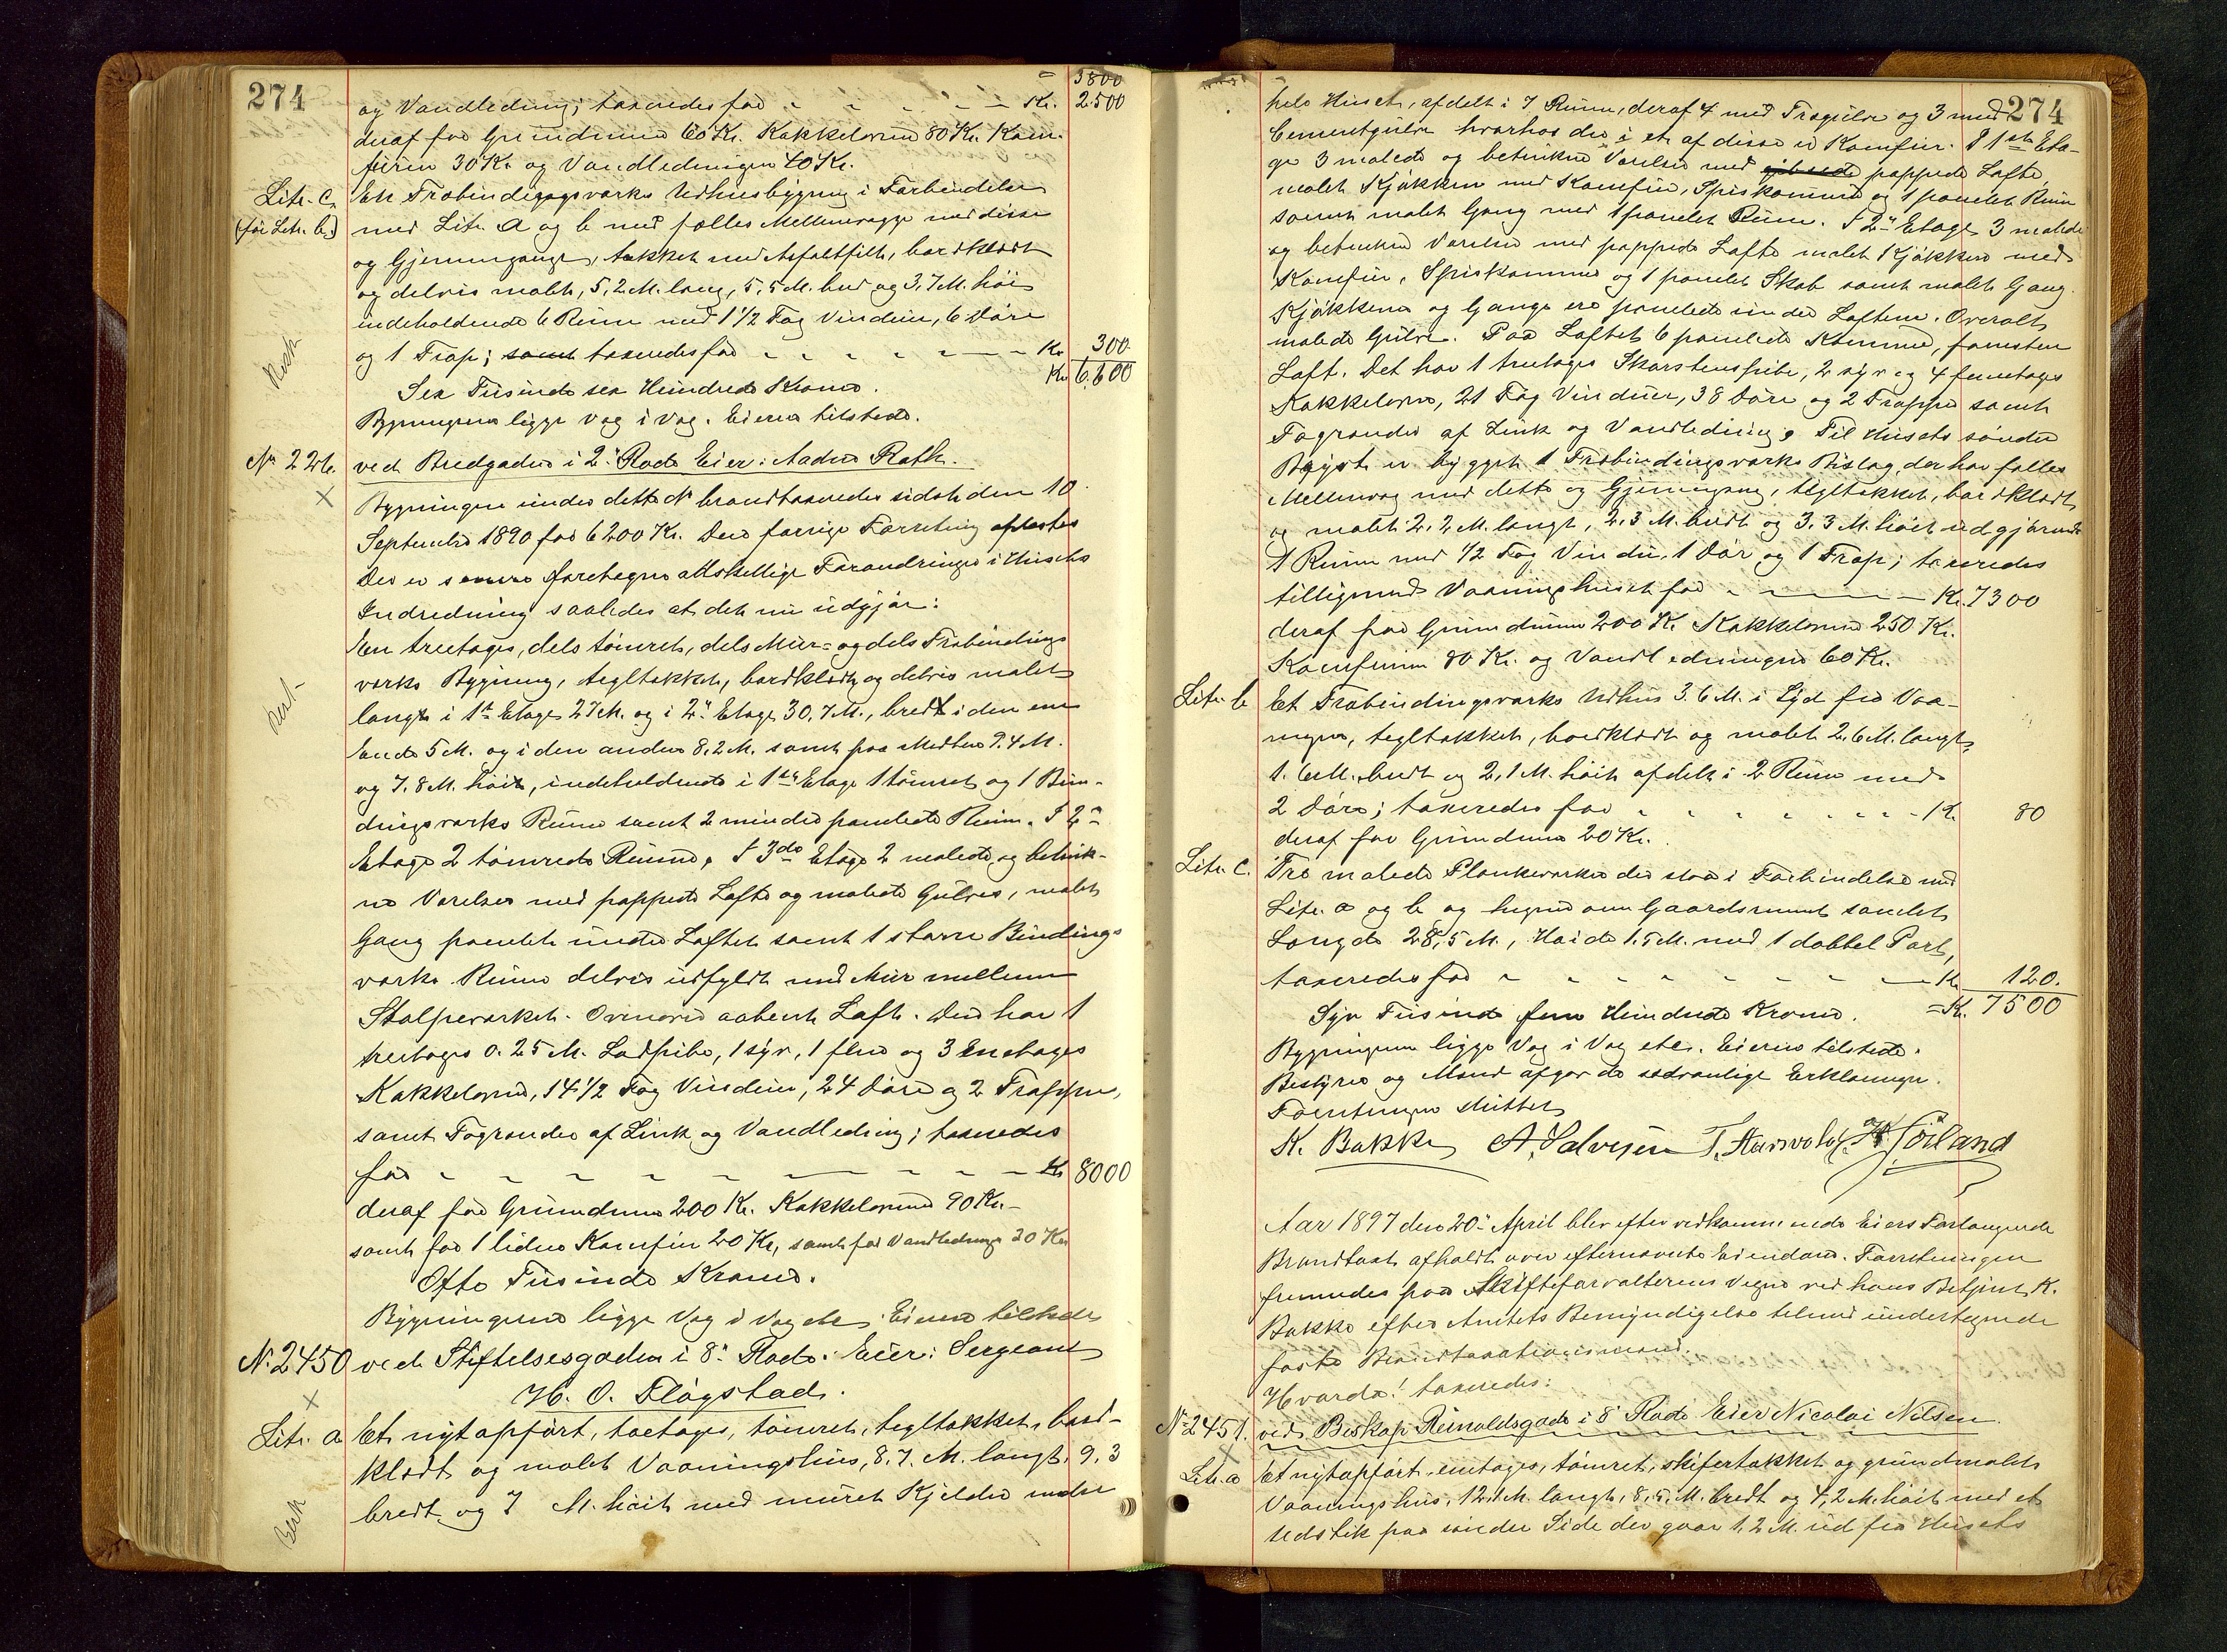 274
3800
og Vandledning; taxeredes for - - - - - Kr. 2500
deraf for Grundmuren 60 Kr. Kakkelovnene 80 Kr. Kom-
furen 30 Kr. og Vandledningen 40 Kr.
Litr. C. En Træbindingsværks Udhusbygning i Forbindelse
(før Litr. b.) med Litr. a og b med fælles Mellemvægge med disse
og Gjennemgange, tækket med Asfaltfilt, bordklædt
og delvis malet, 5,2 M. lang, 5,5 M. bred og 3,7 M. høi
indeholdende 6 Rum med 1 1/2 Fag Vinduer, 6 Døre
og 1 Trap; samt taxeredes for - - - - - Kr. 300
Kr. 6,600
Sex Tusinde sex Hundrede Kroner.
Bygningerne ligge Væg i Væg. Eieren tilstede.
No 226. ved Bredgaden i 2. Rode Eier: Andrea Rath.
Bygningen under dette No brandtaxeredes sidst den 10
September 1890 for 6200 Kr. Den forrige Forretning oplæstes
Der er senere foretagne adskellige Forandringer i Husets
Indredning saaledes at det nu udgjør:
En treetages, dels tømret, dels Mur- og dels Træbindings
værks Bygning, tegltækket, bordklædt og delvis malet
langt i 1ste Etage 27 M. og i 2. Etage 30,7 M., bredt i den ene
Ende 5 M. og i den anden 8,2 M. samt paa Midten 9.4 M.
og 7.8 M. høit, indeholdende i 1ste Etage 1 tømret og 1 Bin-
dingsværks Rum samt 2 mindre panelede Rum. I 2den
Etage 2 tømrede Rum. I 3de Etage 2 malede og betruk-
ne Værelser med pappede Lofte og malede Gulve, malet
Gang panelet under Loftet samt 1 større Bindings
værks Rum delvis udfyldt med Mur mellem
Stolpeværket. Ovenover aabent Loft. Den har 1
treetages 0.25 M. Lodpibe, 1 syv, 1 fler og 3 Enetages
Kakkelovne, 14 1/2 Fag Vinduer, 24 Døre og 2 Trapper,
samt Tagrender af Zink og Vandledning; taxeredes
for - - - - - Kr 8000
deraf for Grundmur 200 Kr. Kakkelovnene 90 Kr.
samt for 1 liden Komfur 20 Kr, samt for Vandledninge 20 Kr
Otte Tusinde Kroner.
Bygningerne ligge Væg i Væg etc. Eieren tilstede
No 2450 ved Stiftelsesgaden i 8. Rode. Eier: Sergeant
H. O. Fløgstad.
Litr. a Et nyt opført, toetages, tømret, tegltækket, bord-
klædt og malet Vaaningshus, 8.7. M. langt, 9,3
bredt og 7 M. høit med muret Kjelder under
274
hele Huset, afdelt i 7 Rum, deraf 4 med Trægulve og 3 med
Cementgulve hvorhos der i et af disse er Komfur. I 1ste Eta-
ge 3 malede og betrukne Værelser med gibsede pappede Lofte,
malet Kjøkken med Komfur, Spiskammer og 1 panelet Rum
samt malet Gang med 1 panelet Rum. I 2. Etage 3 malede
og betrukne Værelser med pappede Lofte malet Kjøkken med
Komfur, Spiskammer og 1 panelet Skab samt malet Gang.
Kjøkkener og Gange ere panelede under Loftene. Overalt
malede Gulve. Paa Loftet 6 panelede Kammere, forresten
Loft. Det har 1 treetages Skorstenspibe, 2 syv og 4 femetages
Kakkelovne, 21 Fag Vinduer, 38 Døre og 2 Trapper samt
Tagrender af Zink og Vandledning. Til Husets søndre
Bryst er bygget 1 Træbindingsværks Bislag, der har fælles
Mellemvæg med dette og Gjennemgang, tegltækket, bordklædt
og malet 2,2 M. langt, 2,3 M. bredt og 3,3 M. høit udgjørende
1 Rum med 1/2 Fag Vindu, 1 Dør og 1 Trap; taxeredes
tilligemed Vaaningshuset for - - - - - Kr. 7300
deraf for Grundmuren 200 Kr. Kakkelovnene 250 Kr.
Komfurene 80 Kr. og Vandledningen 60 Kr.
Litr. b Et Træbindingsværks Udhus 3.6 M. i Syd fra Vaa-
ningen, tegltækket, bordklædt og malet 2,6 M. langt,
1.6 M. bredt og 2,1 M. høit afdelt i 2 Rum med
2 Døre; taxeredes for - - - - - Kr. 80
deraf for Grundmur 20 Kr.
Litr. C. Tre malede Plankeværker der staa i Forbindelse med
Litr. a og b og hegner om Gaardsrummet samlet
Længde 28,5 M., Høide 1,5 M. med 1 dobbel Port,
taxeredes for - - - - - Kr 120.
Syv Tusinde fem Hundrede Kroner. =Kr. 7500
Bygningerne ligge Væg i Væg etc. Eieren tilstede.
Bestyrer og Mænd afgav de sædvanlige Erklæringer.
Forretningen sluttet
K. Bakke A. Salvesen T. Aarvold H. Sørland
Aar 1897 den 20. April blev efter vedkommende Eiers Forlangende
Brandtaxt afholdt over efternævnte Eiendom. Forretningen
fremmedes paa Skifteforvalterens Vegne ved hans Betjent K.
Bakke efter Amtets Bemyndigelse tilmed undertegnede
faste Brandtaxationsmænd.
Hvorda! taxeredes:
No 2451. ved Biskop Reinaldsgade i 8 Rode Eier Nicolai Nilsen
Litr. a Et nyt opført, eetages, tømret, skifertækket og grundmalet
Vaaningshus, 12,1 M. langt, 8,5 M. bredt og 4,2 M. høit med et
Udstik paa søndre Side der gaar 1,2 M. ud fra Husets